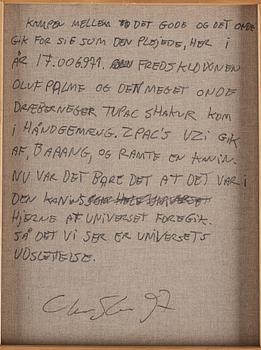 KAMPEN MELLEM DET GODE OG DET ONDE
GIK FOR SIG SOM DEN PLEJEDE, HER I
ÅR 17.006.971. FREDSKLOVNEN
OLUF PALME OG DEN MEGET ONDE
DRÆBERNEGER TUPAC SHAKUR KOM
I HÅNDGEMÆNG. 2PAC'S UZI GIK
AF, BAAANG, OG RAMTE EN KANIN.
NU VAR DET BARE DET AT DET VAR I
DEN KANINS HELE UNIVERSET
HJERNE AF UNIVERSET FOREGIK.
SÅ DET VI SER ER UNIVERSETS
UDSLETTELSE.
97